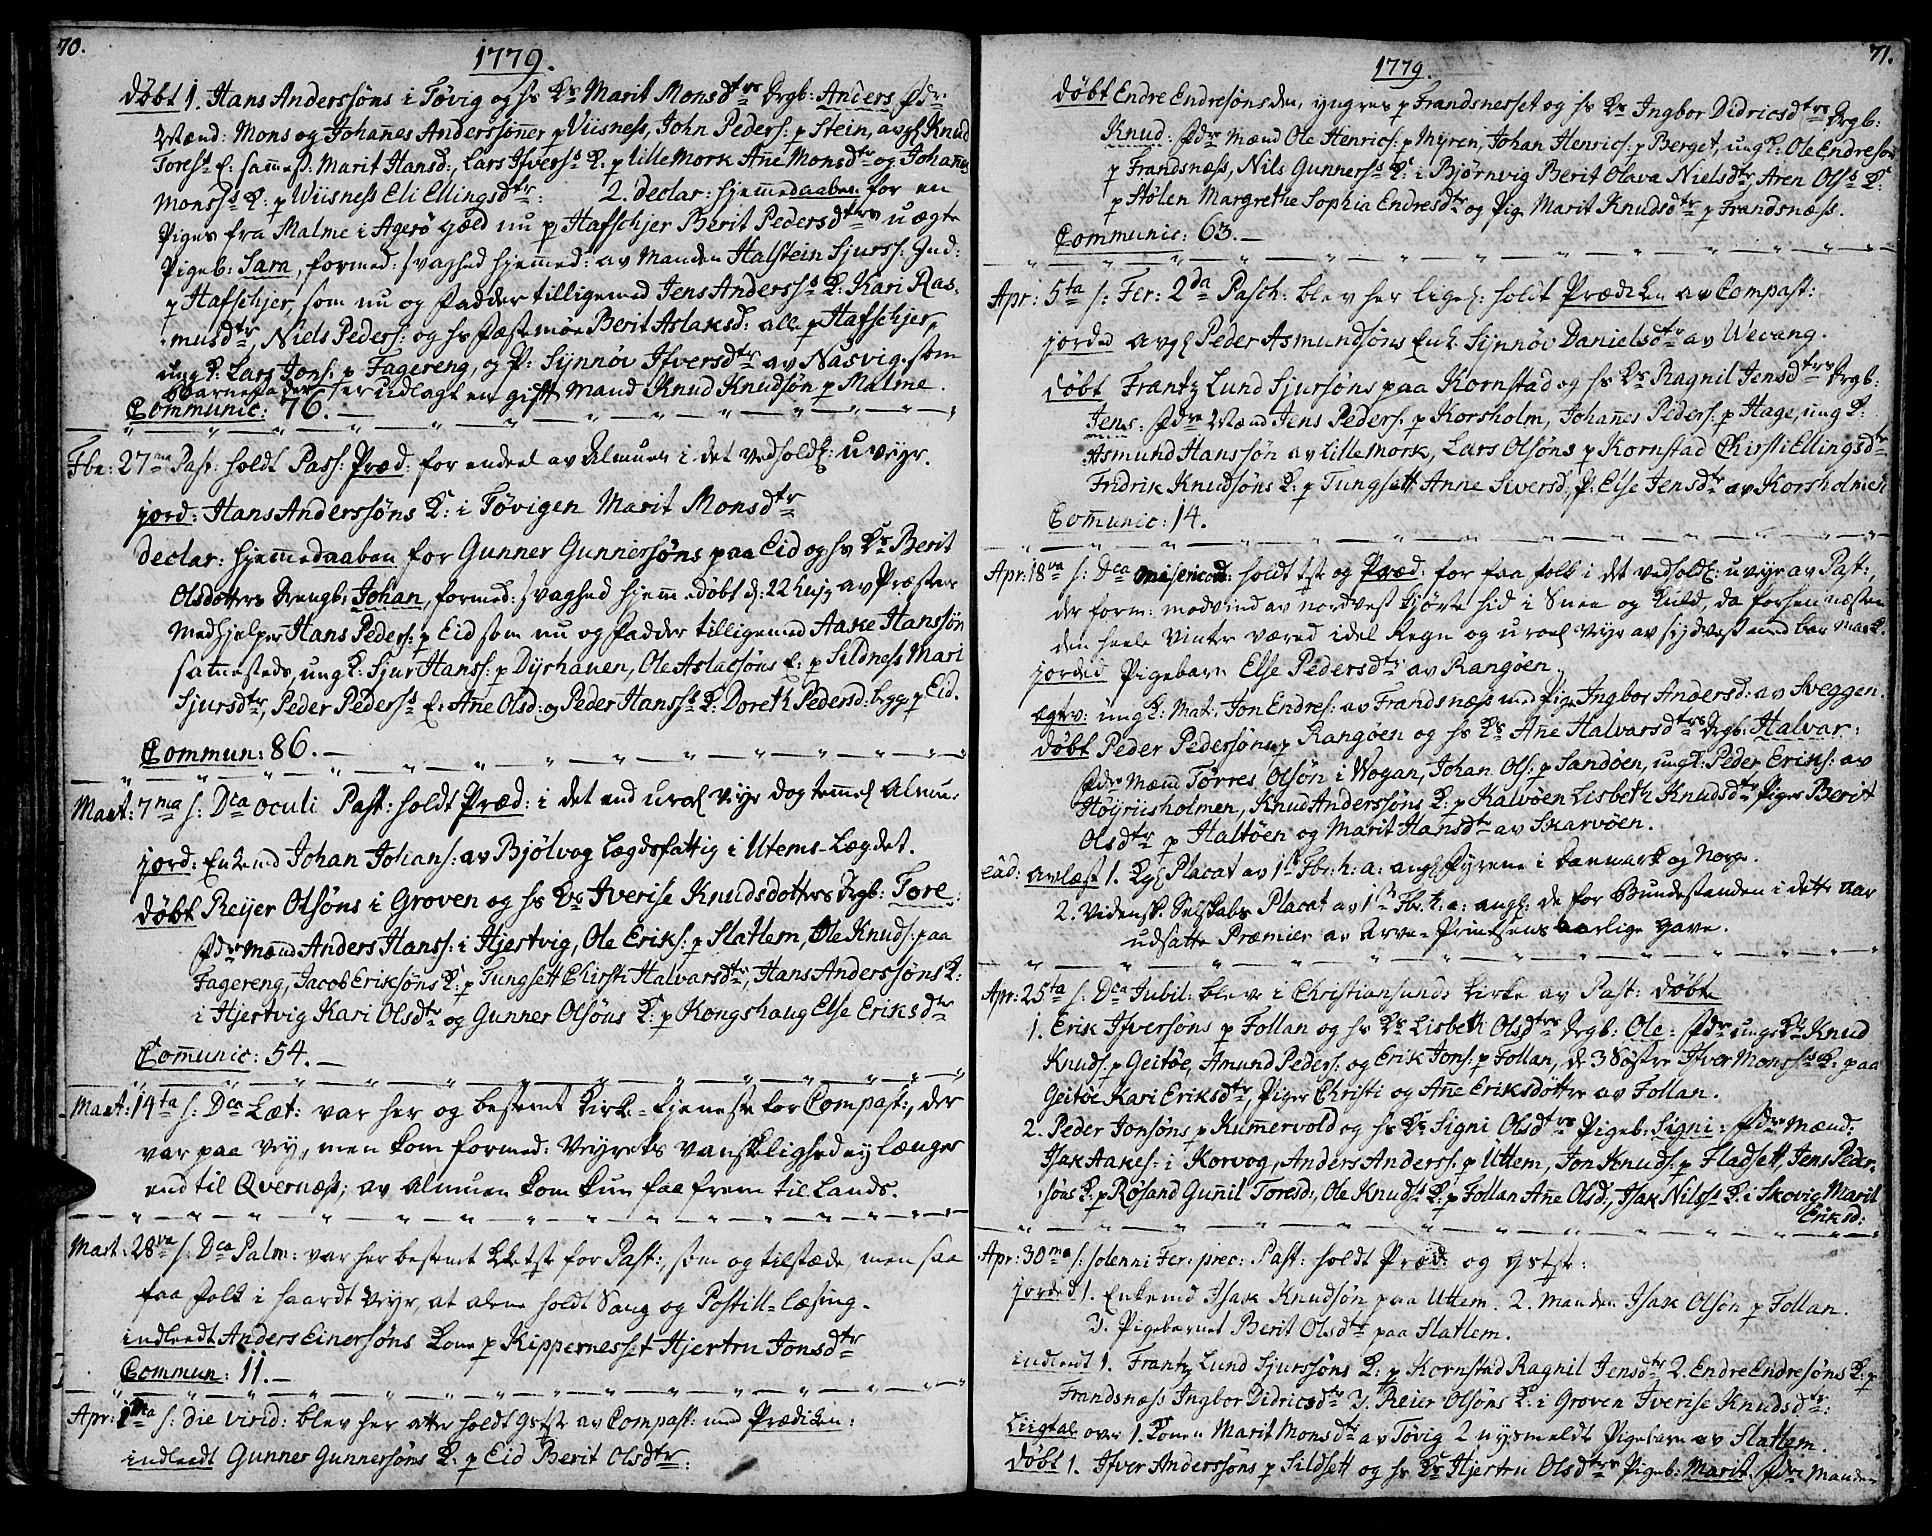 70.
1779.
døbt 1. Hans Anderssøns i Tøvig og hs Ks Marit Monsdtrs Drgb: Anders Fdr:
Mænd: Mons og Johañes Anderssøner p Viisness, John Peders: p Stein, avgl Knud
Toress E: sammest. Marit Hansd:, Lars Ifverss K: p Lille Mork Añe Monsdtr og Johañes
Monsss K: p Wiisness Eli Ellingsdtr: 2. declar: hjemedaaben for en
Piges fra Malme i Agerø Gjeld nu p Hafschjer Berit Pedersdtrs uægte
Pigeb: Sara, formed: svaghed hjemmed: av Manden Halstein Sjurs: Gud:
p Hafschjer, som nu og fadder tilligemed Jens Anderss K: Kari Ras,
musdtr, Niels Peders: og hs Fæstemøe Berit Aslaksd: alle p Hafschjer,
ungK: Lars Jons: p Fagereng, og P: Synnøv Ifversdtr av Nasvig. som
Barnefader er udlagt en gift Mand Knud Knudsøn p Malme.
Communic: 76.
Fbr: 27ma Past: holdt Pass: Præd: for endeel av Almuen i det vedholdl: uveyr.
jord: Hans Anderssøns K: i Tøvigen Marit Monsdtr
declar: hjemmedaaben for Gunner Gunnersøns paa Eid og hs Ks Berit
Olsdotters Drengb: Johan, formed: svaghed hjemmedøbt d: 22 hujg av Præstens
Medhjelper Hans Peders: p Eid som nu og fadder tilligemed Aake Hanssøn
sammesteds, ungK: Sjur Hanss: p Dyrhauen, Ole Aslacsøns E: p Sildness Mari
Sjursdtr, Peder Pederss E: Añe Olsd: og Peder Hansss K: Doreth Pedersd: begge p Eid.
Commun: 86.
Mart: 7ma s: Dca oculi Past: holdt Præd: i det end uroel veyr dog temmel Almue.
jord: Enkemd Johan Johans: av Bjølvog lægdsfattig i Utems-Lægdet.
døbt Reijer Olsøns i Groven og hs Ks Iverise Knudsdotters Drgb: Tore:
Fdr Mænd Anders Hanss: i Hjertvig, Ole Eriks: p Slatlem, Ole Knuds: paa
Fagereng, Jacob Eriksøns K: p Tungsett Chirsti Halvarsdtr, Hans Anderssøns K:
i Hjertvig Kari Olsdtr og Gunner Olsøns K: p Kongshaug Else Eriksdtr
Comunic: 54.
Mart: 14ta s: Dca Læt: var her og bestemt Kirke-tjeneste for Compast:, der
var paa vey, men kom formed: Veyrets vanskelighed ey længer
end til Qvernæss; av Almuen kom kun faa frem til Lands.
Mart: 28va s: Dca Palm: var her bestemt for Past:, som og tilstæde men saa
faa folk i haardt Veyr, at alene holdt Sang og Postill-læsing.
indleedt Anders Einersøns Kone p Kippernesset Hjertru Jonsdtr
Commun: 11.
Apr: 1ma s: die virid: blev her atter holdt av Compast: med Prædiken:
indleedt Gunner Gunnersøns K: p Eid Berit Olsdtr:
71.
1779.
døbt Endre Endresøns den yngres p Frandsnesset og hs Ks Ingbor Didricsdtrs Drgb:
Knud: Fdr Mænd Ole Henrics: p Myren, Johan Henrics: p Berget, ungK: Ole Endresøn
p Frandsnæss, Nils Gunnerss K: i Bjørnvig Berit Olava Nielsdtr, Aren Olss K:
p Stølen Margrethe Sophia Endresdtr og Pig. Marit Knudsdtr p Frandsnæss.
Communic: 63.
Apr: 5ta s: Fer: 2da Pasch: blev her ligel: holdt Prædiken av Compast:
jorded avgl Peder Asmundsøns Enk. Synnøv Danielsdtr av Wevang.
døbt Frantz Lund Sjursøns paa Kornstad og hs Ks Ragnil Jensdtrs Drgb:
Jens: Fdr Mænd Jens Peders: p Korsholm, Johañes Peders: p Hage, ung K:
Asmund Hanssøn av Lille Mork, Lars Olsøns p Kornstad Chirsti Ellingsdtr
Fridrik Knudsøns K: p Tungsett Anne Siversd, P: Else Jensdtr av Korsholmen
Comunic: 14.
Apr: 18va s: Dca Misericod: holdt og Præd: for faa folk i det vedholdl: uveyr av Past:,
der form: modvind av nordvest kjørte hid i Snee og Kuld, da forhen næsten
den heele Vinter været idel Regn og uroel Veyr av sydvest med bar Mark.
jorded Pigebarn Else Pedersdtr av Rangøen.
Egtv: ungK: Mat: Jon Endres: av Frandsnæss med Pige Ingbor Andersd: av Sveggen.
døbt Peder Pedersøns p Rangøen og hs Ks Añe Halvarsdtrs Drgb: Halvar:
Fdr Mænd Tørres Olsøn i Wogan, Johan Ols: p Sandøen, ungK: Peder Eriks: av
Høyriisholmen, Knud Anderssøns K: p Kalvøen Lisbeth Knudsdtr Piger Berit
Olsdtr p Haltøen og Marit Hansdtr av Skarvøen.
ead: avlæst 1. Kgl Placat av 1ste Fbr: h: a: angl Fyrene i Danmark og Norge.
2. Vidensk. Selskabs Placat av 1ste Fbr. h: a: angl: de for Bundestanden i dette aar
udsatte Præmier av Arve-Printsens aarlige Gave.
Apr: 25ta s: Dca Jubil: blev i Christiansunds Kirke av Past: døbte
1. Erik Ifversøns p Follan og hs Ks Lisbeth Olsdtrs Drgb: Ole: Fdr ungeK Knud
Knuds: p Geitøe, Amund Peders: og Erik Jons: p Follan, de 3 Søstre Ifver Monsss K: paa
Geitøe Kari Eriksdtr, Piger Christi og Añe Eriksdotter av Follan.
2. Peder Jonsøns p Kumervold og hs Ks Signi Olsdtrs Pigeb: Signi: Fdr Mænd:
Isak Aakes: i Korvog, Anders Anderss: p Uttem, Jon Knuds: p Fladsett, Jens Peder,
søns K: p Røsand Gunil Toresd:, Ole Knudss K: p Follan Añe Olsd:, Isak Nilsss K: i Skovig Marit
Eriksd:
Apr: 30ma s: solenni Fer: prec: Past: holdt Præd: og
jorded 1. Enkemd Isak Knudsøn paa Uttem. 2. Manden Isak Olsøn p Follan.
3. Pigebarnet Berit Olsdtr paa Slatlem.
indledt 1. Frantz Lund Sjurssøns K: p Kornstad Ragnil Jensdtr 2. Endre Endresøns K: p
Frandsnæss Ingbor Didricsdtr 3. Reier Olsøns K: i Groven Iverise Knudsdtr:
Liigtale over 1. Konen Marit Monsdtr av Tøvig 2 nysmeldt Pigebarn av Slatlem.
døbt 1. Ifver Anderssøns p Sildsett og hs Ks Hjertru Olsdtrs Pigeb: Marit. Fdr Manden